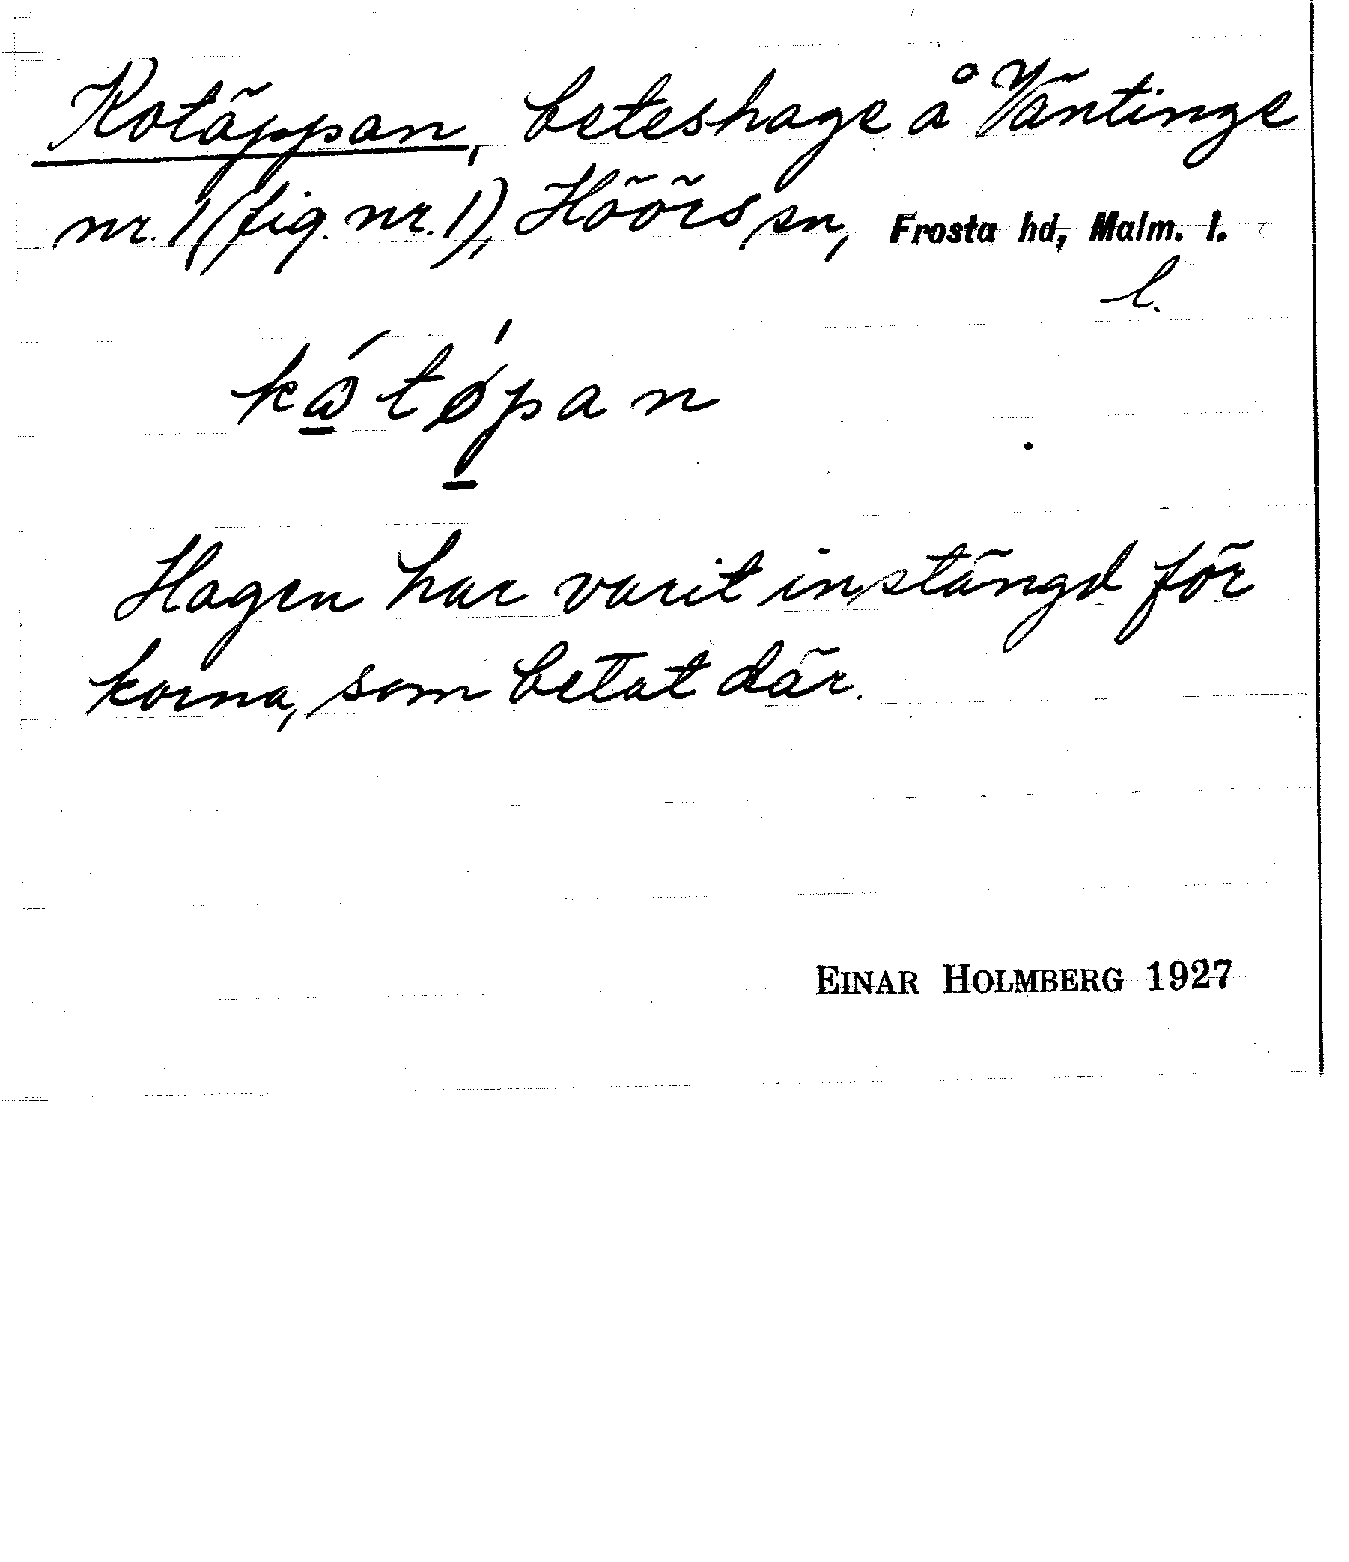 Kotäppan, beteshage å Väntinge
nr. 1 (fig. nr. 1), Höörs sn, Frosta hd, Malm. l.
l.
Hagen har varit instängd för
korna, som betat där.
EINAR HOLMBERG 1927